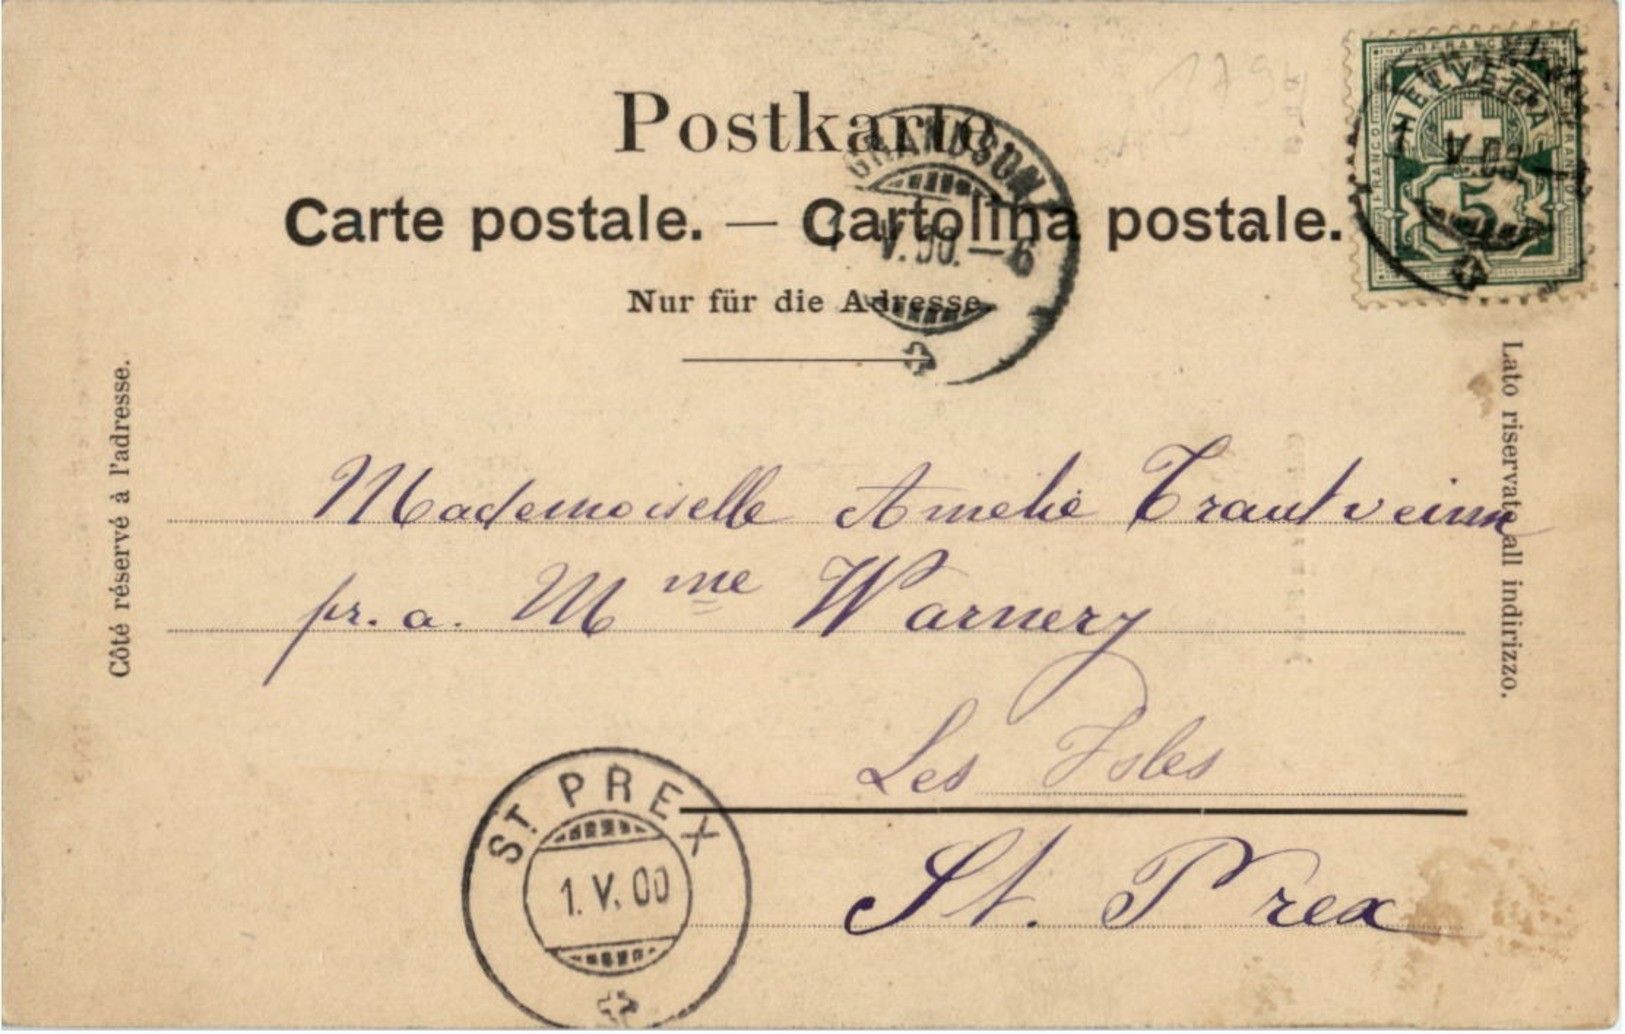 Postkarte
Carte postale. — Cartolina postale.
Nur für die Adresse.
GRANDSON
V.00.—6
FRANCO
HELVETIA
5
Côté réservé à l'adresse.
Lato riservato all indirizzo.
Mademoiselle Amelie Trautveinn
pr. a. Mme Warnery
Les Isles
St. Prex
ST. PREX
1. V. 00